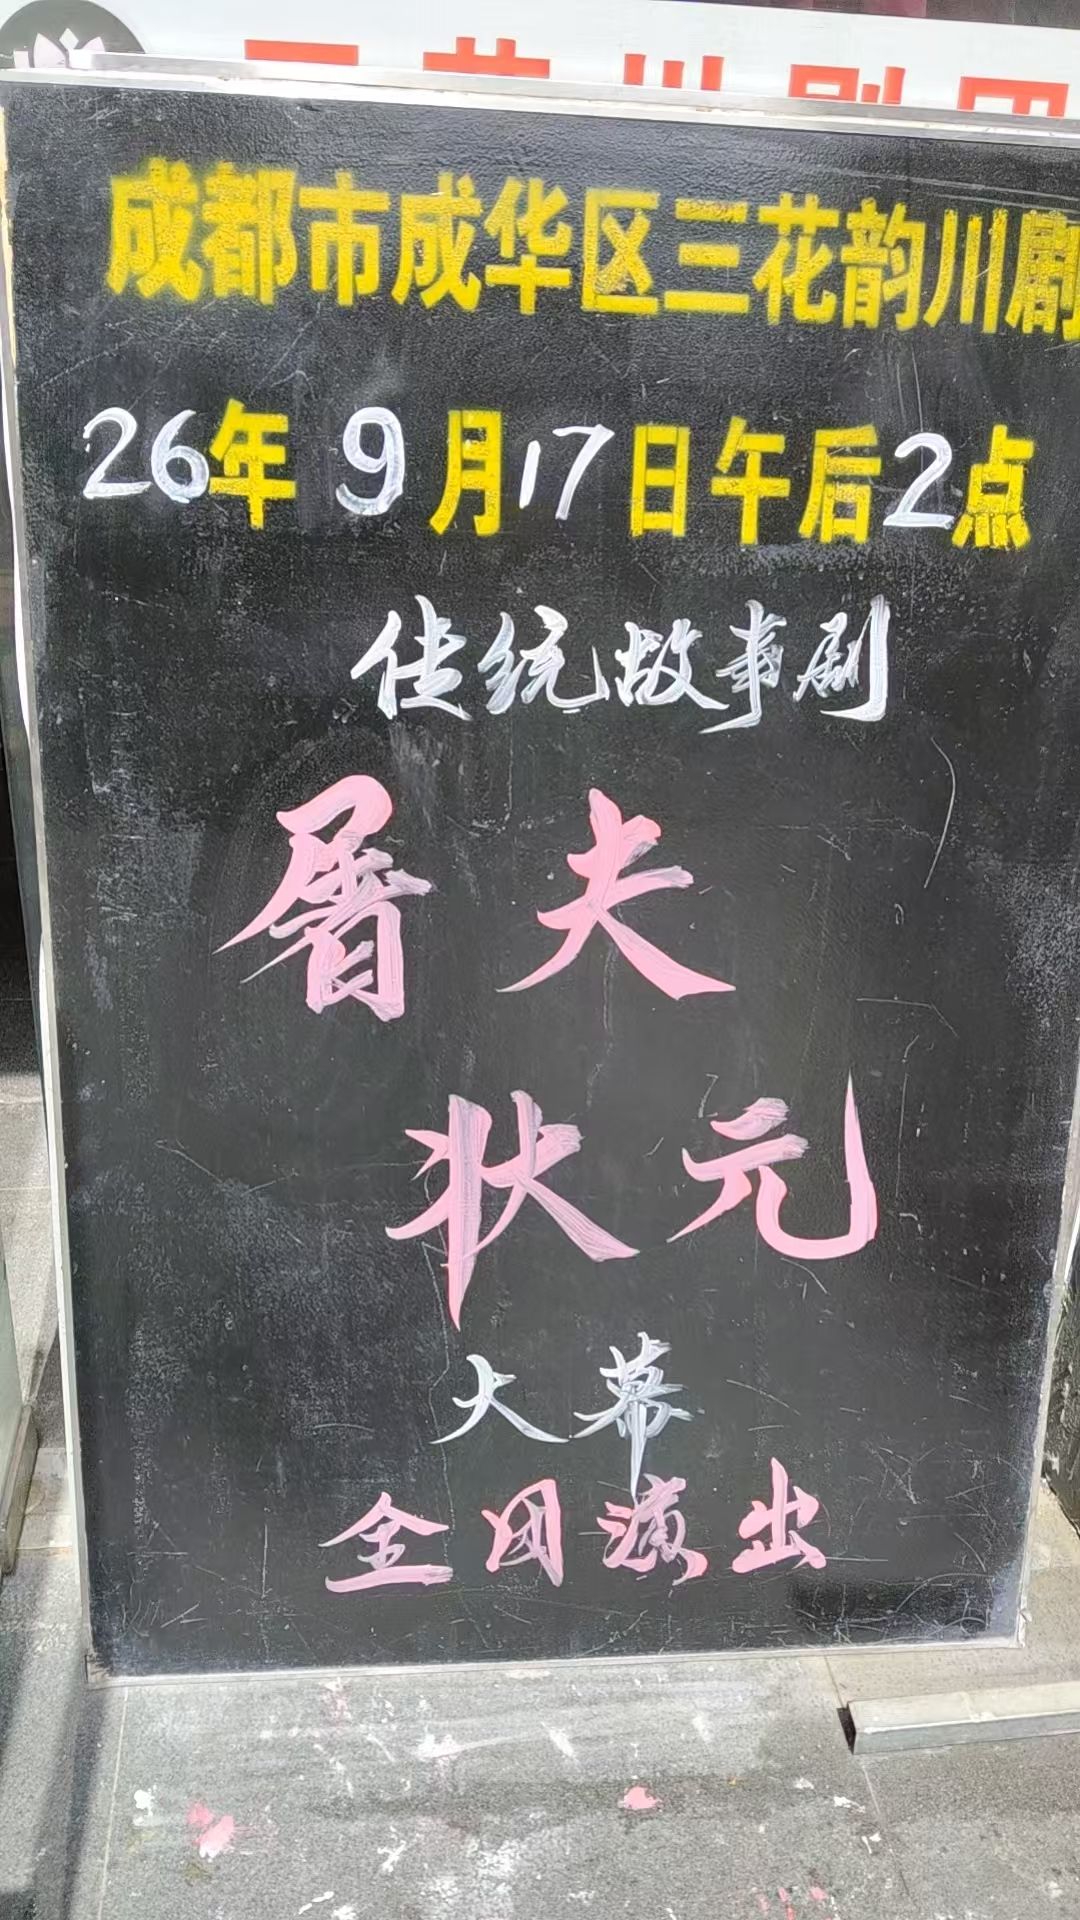 成都市成华区三花韵川剧
26年9月17日午后2点
传统故事剧
屠夫
状元
大幕
全团演出